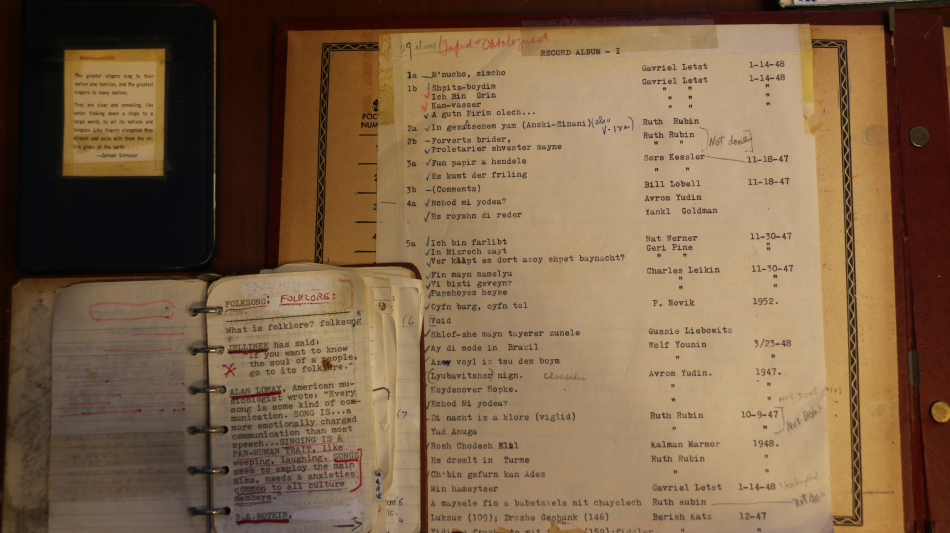 The greatest singers sing to their
nation and families, and the greatest
singers to many nations.
They are clear and consoling, like
water
world, to all its nations and
tongues. Like fingers elongated they
stretch and
the place of the earth....
POC
NUM
3
4
Taped & Catalogued
RECORD ALBUM - I
1a M'nucho, simcho Gavriel Letst 1-14-48
1b Shpits-boydim Gavriel Letst 1-14-48
Ich Bin Grin " " "
Kan-vasser " " "
A gutn Pirim olech... " " "
2a In gezaltsenem yam (Anski-Sinani) (also Ruth Rubin
V-1xa)
2b Forverts brider, Ruth Rubin
Proletarier shvester mayne " " Not done
3a Fun papir a hendele Sore Kessler 11-18-47
Es kumt der friling " "
3b (Comments) Bill Lobell 11-18-47
4a Echod mi yodea? Avrom Yudin
Es royshn di reder Yankl Goldman
5a Ich bin farlibt Nat Werner 11-30-47
In Mizrech zayt Geri Pine "
Ver klapt es dort azoy shpet baynacht? " "
Fin mayn mamelyu Charles Leikin 11-30-47
Vi bizti geveyn? " "
Papshoyes heyse " "
Oyfn barg, oyfn tol P. Novik 1952.
Void
Shlof-zhe mayn tayerer zunele Gussie Liebowitz
Ay di mode in Brazil Wolf Younin 3/23-48
Azoy voyl iz tsu dem boym "
(Lyubavitsher) nign. Avrom Yudin. 1947.
Koydenover Hopke. " "
Echod Mi yodea? " "
NOT DONE
Di nacht iz a klore (viglid) Ruth Rubin 10-9-47
Yad Anuga " "
Rosh Chodesh Elul Kalman Marmor 1948.
Es dremlt in Turme Ruth Rubin
Ch'bin gefurn kan Ades " "
Min hameytser Gavriel Letst 1-14-48
A maysele fin a babetskele mit chayelech Ruth Rubin Not done
Luksus (109); Droshe Geshank (146) Berish Katz 12-47
FOLKSONG: FOLKLORE:
What is folklore? folksong
JELLINEK has said:
If you want to know
the soul of a people,
go to its folklore."
ALAN LOMAX, American mu-
sicologist wrote: "Every
song is some kind of com-
munication. SONG IS...a
more emotionally charged
communication than most
speech...SINGING IS A
PAN-HUMAN TRAIT, like
weeping, laughing. SONGS
seem to employ the main
aims, needs & anxieties
common to all culture
members."
B.A. BOTKIN,